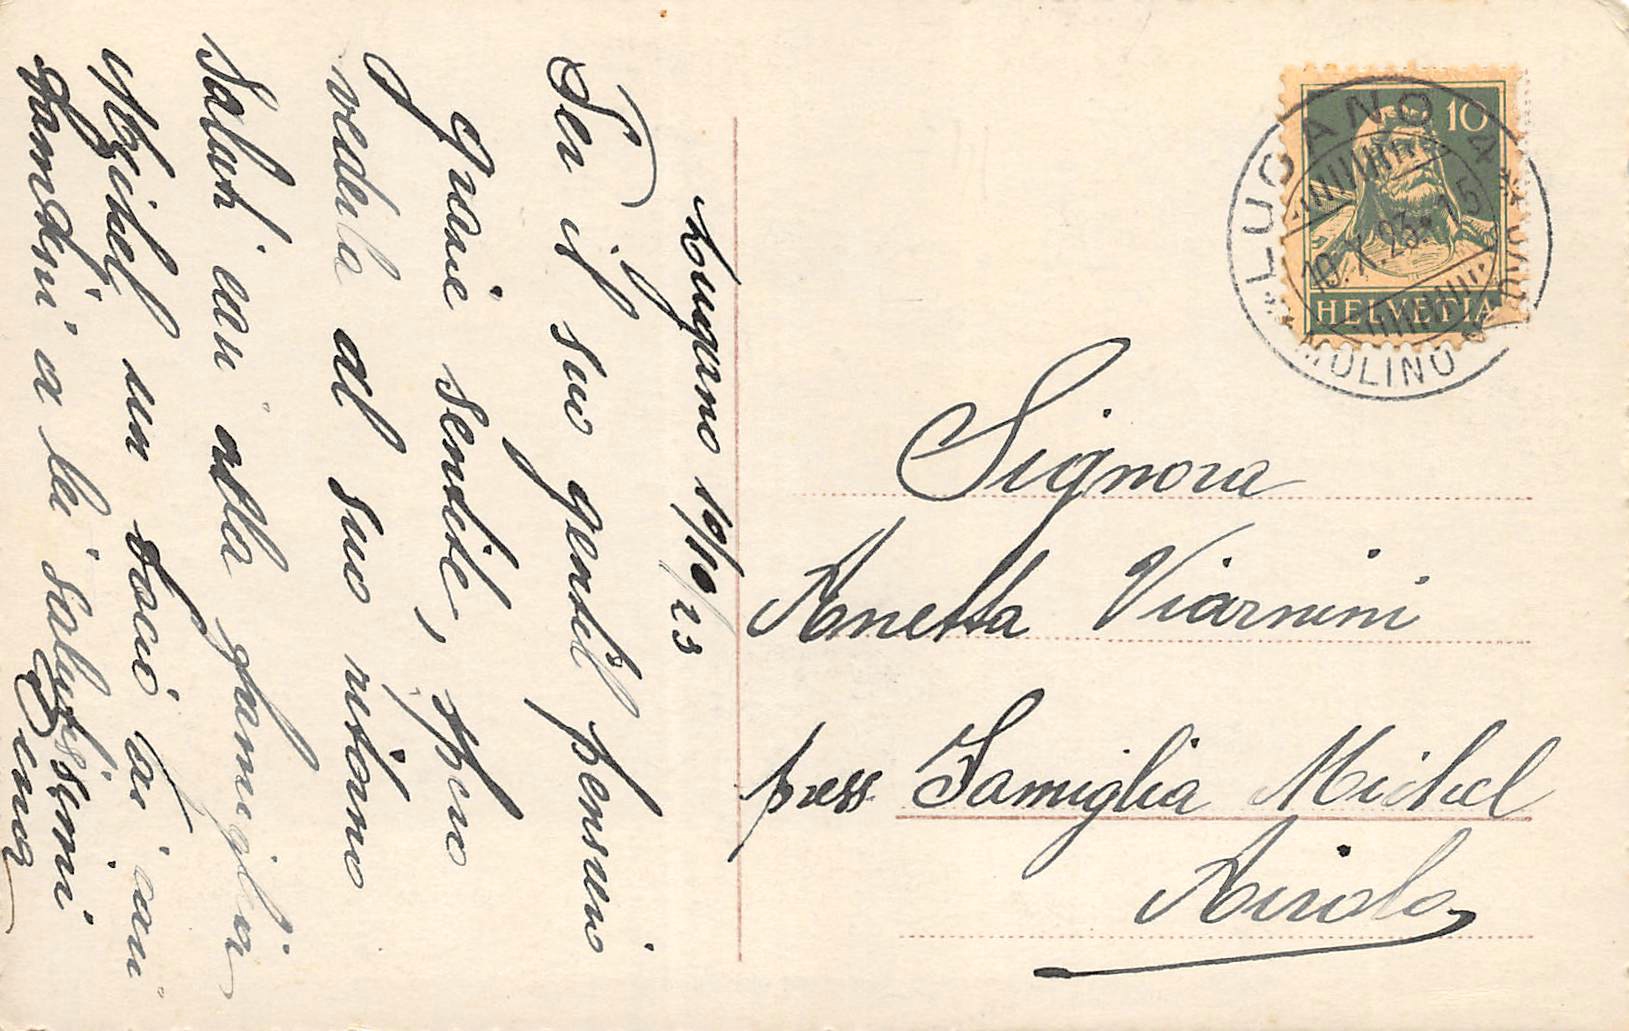 Lugano 19/10/23
Per il suo gentil pensiero
grazie sentite, spero
vederla al suo ritorno
Saluti cari alla famiglia
Michel un bacio ai cari
bambini a lei salutissimi
Signora
Annetta Viarnini
press Famiglia Michel
Airolo
10
HELVETIA
LUGANO 4
10.X.23.15
MOLINO NUOVO